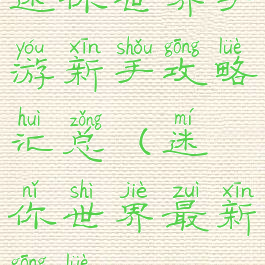 迷你世界手
yóu xīn shǒu gōng lüè
游新手攻略
huì zǒng mí
汇总（迷
nǐ shì jiè zuì xīn
你世界最新
gōng lüè